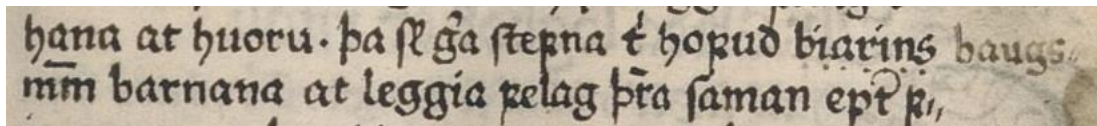 hana at huoru. þa sꝉ g̃a ſteꝼna t̉ hoꝼud biarins baugs
m̅m barnana at leggia ꝼelag þr̃a ſaman epṫ ꝼ,,